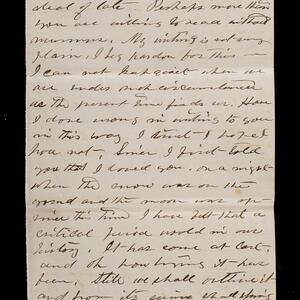 deal of late. Perhaps more than
you are willing to read without
murmur. My writing is not very
plain, I beg pardon for this —
I can not feel quiet when we
are under such circumstances
as the present time finds us. Have
I done wrong in writing to you
in this way. I trust I hope I
have not, Since I first told
you that I loved you. on a night
when the snow was on the
ground and the moon was up-
since the time I have felt that a
critical period would in our
history. It has come at last,
and oh how trying it has
been, still we shall outlive it
and from its